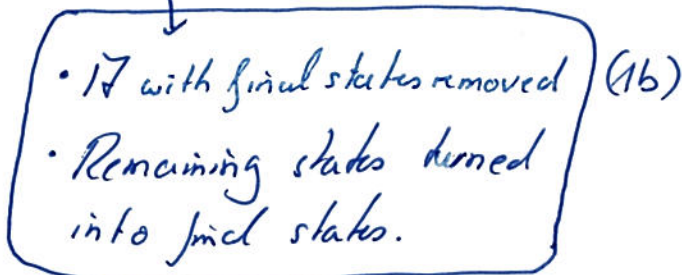 • A with final states removed (1b)
• Remaining states turned
into final states.